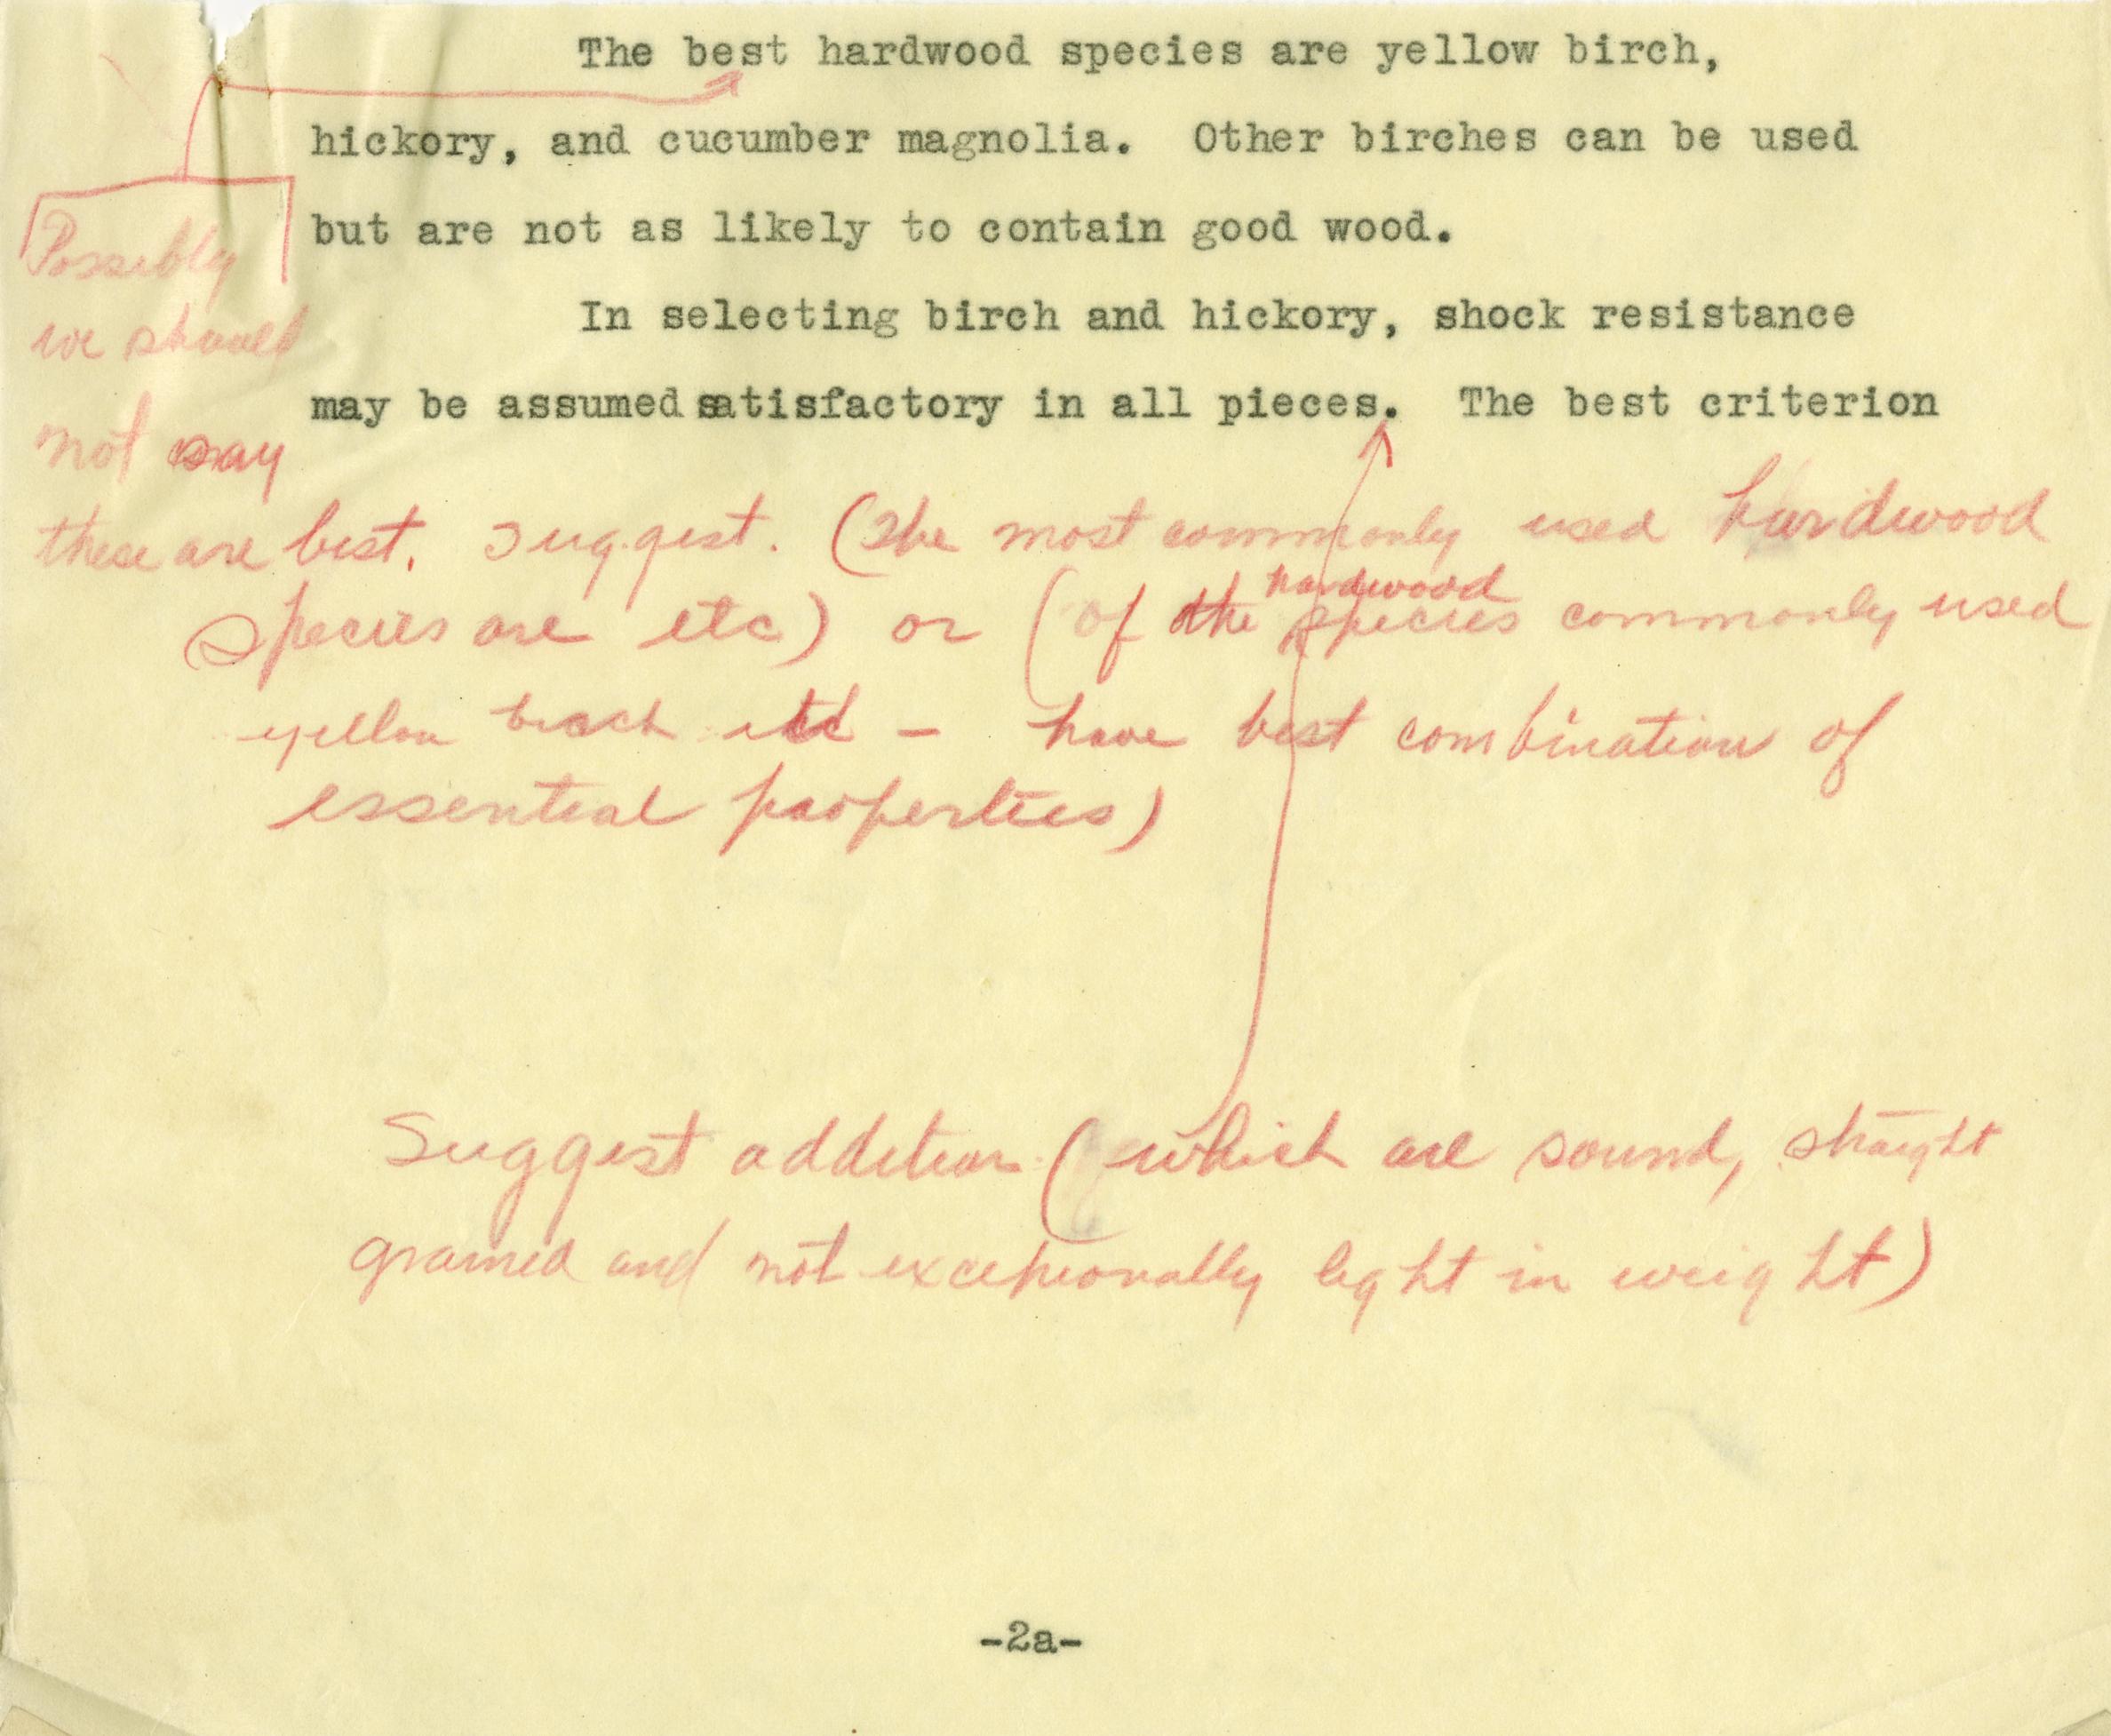 The best hardwood species are yellow birch,
hickory, and cucumber magnolia. Other birches can be used
but are not as likely to contain good wood.
In selecting birch and hickory, shock resistance
may be assumed satisfactory in all pieces. The best criterion
Possibly
we should
not say
these are best. Suggest. (The most commonly used hardwood
species are etc) or (of the hardwood species commonly used
yellow birch etc - have best combination of
essential properties)
Suggest addition (which are sound, straight
grained and not exceptionally light in weight)
-2a-